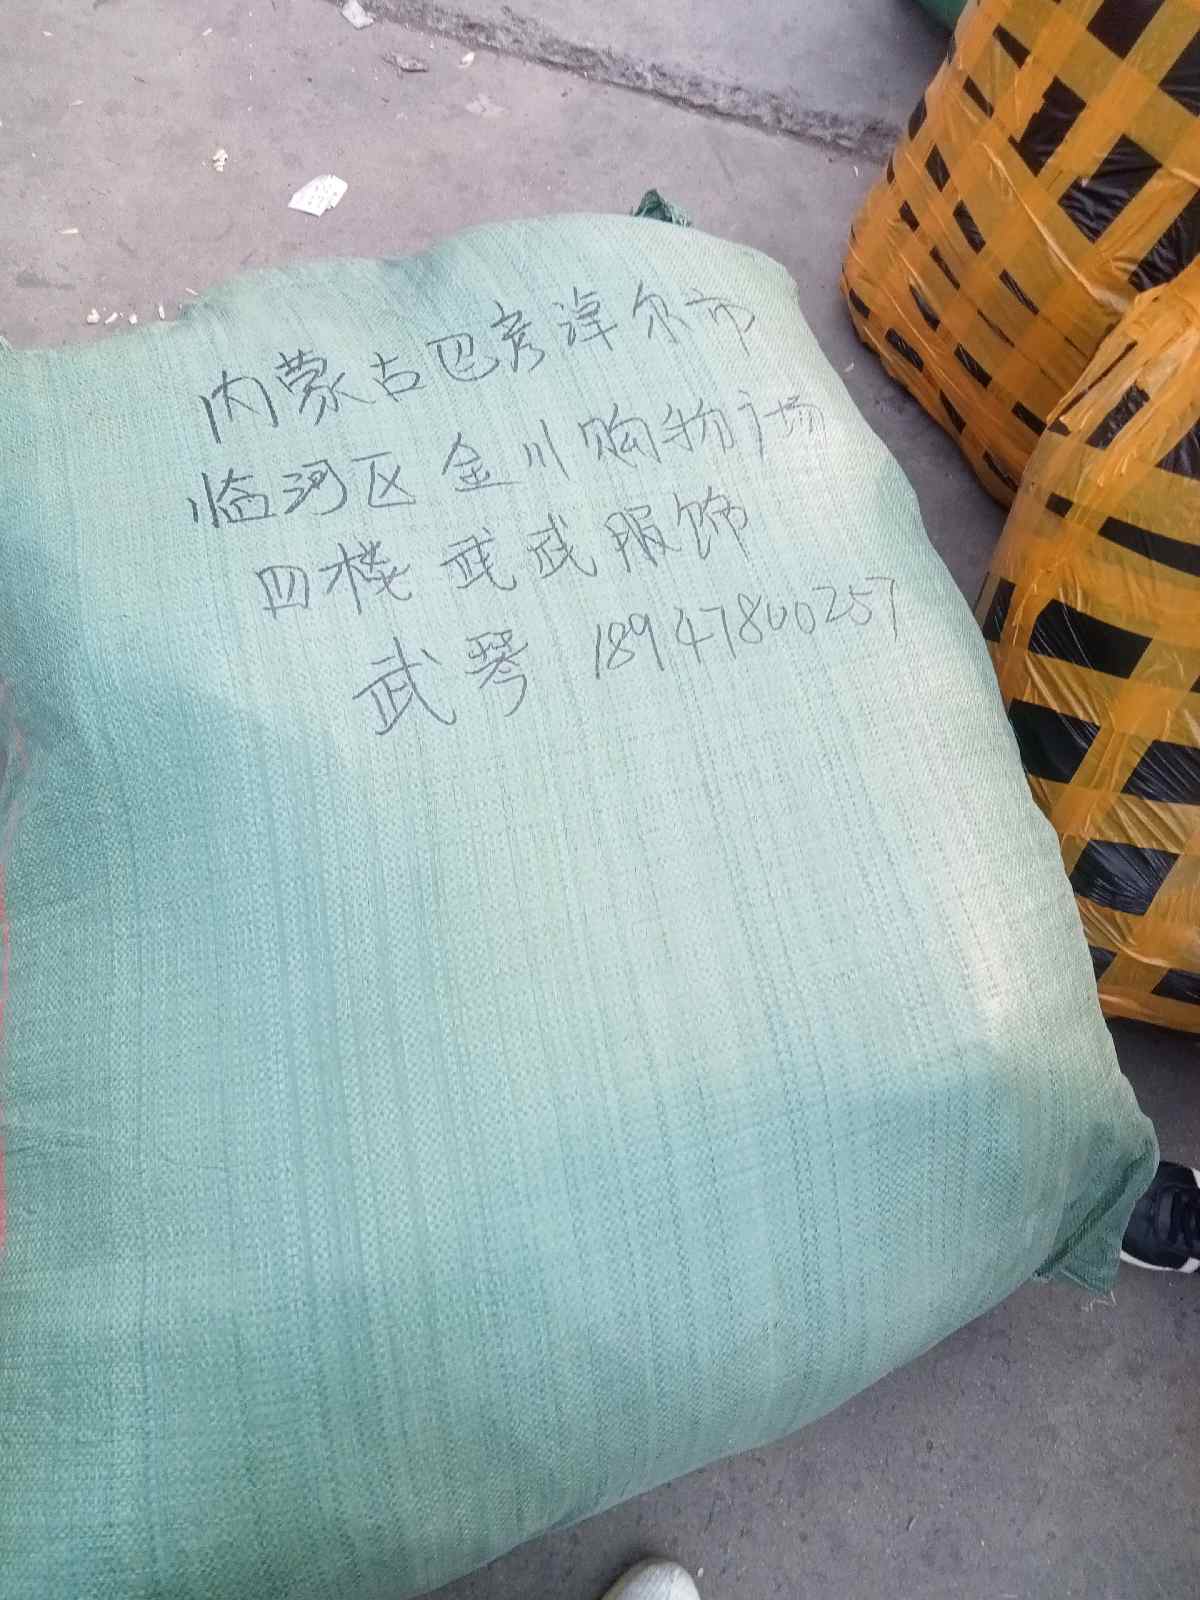 内蒙古巴彦淖尔市
临河区金川购物广场
四楼武武服饰
武琴 18947800257